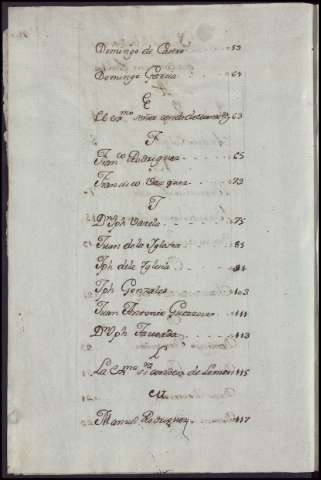 Domingo de Castro - - 53
Domingo Garcia - - 61
E
El Ex.mo Señor conde de - 63
F
Fran.co Rodriguez - - - 65
Francisco Vazquez - - - 73
J
D.n Jph Varela - - - 75
Juan de la Iglesia - - - 81
Jph de la Iglesia - - - 91
Jph Gonzales - - - 103
Juan Antonio - - 111
D.n Jph - - - 113
L
La Ex.ma S.ra condesa de Lemos 115
M
Manuel Rodriguez - - - 117